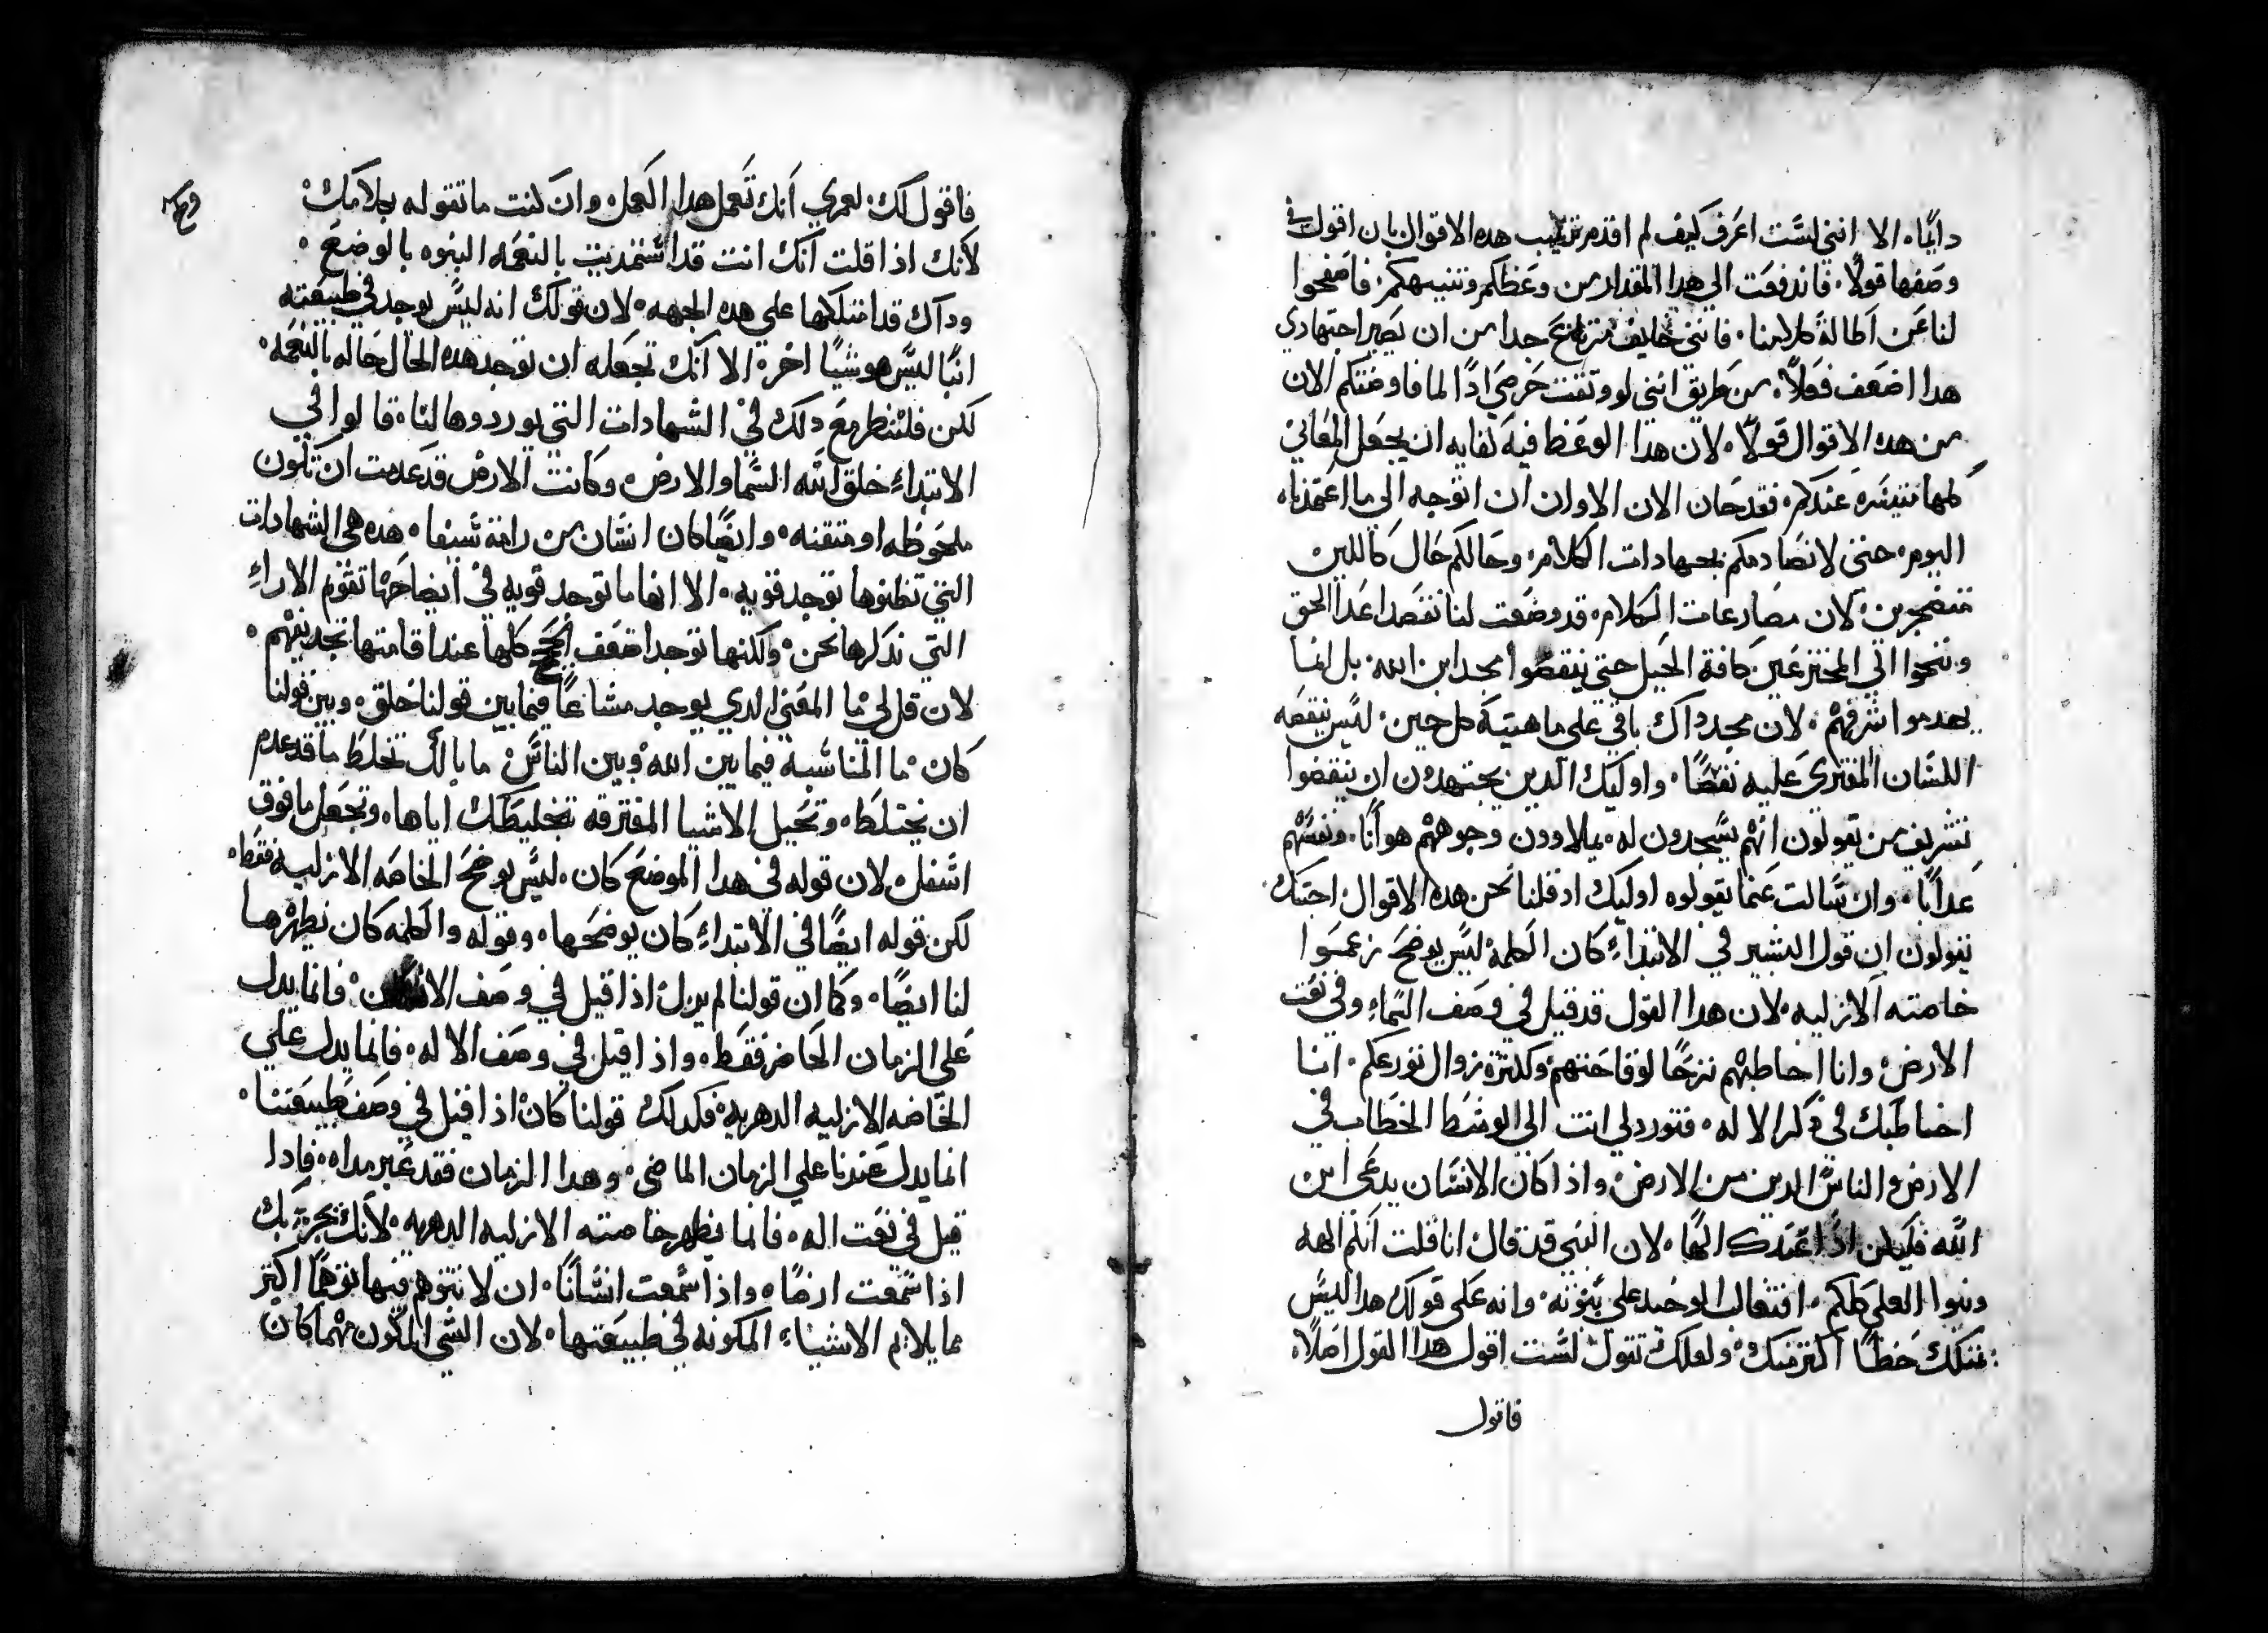 دايمًا. الا انني لست اعرف كيف لم اقدم ترتيب هده الاقوال بان اقول في
وصفها قولًا. فاندفعت الي هدا المقدار من وعظكم وتنبيهكم. فاصفحوا
لنا عن اطالة كلامنا. فانني خايف مرتاع جدا من ان يصير اجتهادي
هدا اضعف فعلًا. من طريق انني لو وتقت حرصي ادًا لما فاوضتكم الان
من هده الاقوال قولًا. لان هدا الوعظ فيه كفايه ان يجعل المعاني
كلها متيسره عندكم. فقد حان الان الاوان ان اتوجه الي ما اعتمدناه
اليوم. حتي لا نصادمكم بجهادات الكلام. وحالكم حال كالدين
متضجرين. لان مصارعات الكلام. قد وضعت لنا تقصد اعدا الحق
ونحوا الي المخترعين كافة الحيل حتي ينقصوا مجد ابن الله. بل انما
يعدموا شرفهم. لان مجد داك باقي علي ماهيته كل حين. ليس ينقصه
اللسان المفتري عليه نقصًا. واوليك الدين يجتهدون ان ينقضوا
تشريف من تقولون انهم يسجدون له. يملاوون وجوههم هوانًا. ونفسهم
عدابًا. وان سالت عما يقولوه اوليك اد قلنا نحن هده الاقوال اجبتك
يقولون ان قول البشير في الابتداء كان الكلمة ليس يوضح زعموا
خاصته الازليه. لان هدا القول قد قيل في وصف السماء وفي نعت
الارض. وانا اخاطبهم نزحًا لوقاحتهم وكثرة زوال تورعكم. انا
اخاطبك في دكر الاله. فتورد لي انت الي الوسط الخطاب في
الارض والناس الدين من الارض. واذا كان الانسان يدعي ابن
الله فليكن اذًا عندك الهًا. لان النبي قد قال انا قلت انكم الهه
وبنوا العلي كلكم. افتغالب الوحيد علي بنوته. وانه علي قولك هدا ليس
يمتلك حظًا اكتر منك. ولعلك تقول لست اقول هدا القول اصلًا.
فاقول
فاقول لك. لعمري انك تعمل هدا العمل وان كنت ما تقوله بكلامك
لانك اذا قلت انك انت قد استمديت بالنعمه البنوه بالوضع.
وداك قد امتلكها علي هده الجهه. لان قولك انه ليس يوجد في طبيعته
ابنًا ليس هو شيًا اخر. الا انك تجعله ان توجد هده الحال حاله بالنعمه.
لكن فلننظر مع دلك في الشهادات التي يوردوها لنا. قالوا في
الابتداء خلق الله السما والارض. وكانت الارض قد عدمت ان تكون
ملحوظه او متقنه. وايضًا كان انسان من رامة سيفا. هده هي الشهادات
التي تظنوها توجد قويه. الا انها ما توجد قويه في ايضاحها تقوم الاراء
التي ندكرها نحن. ولكنها توجد اضعف الحجج كلها عند اقامتها تجديفهم.
لان قل لي ما المعني الدي يوجد مشاعًا فيما بين قولنا خلق. وبين قولنا
كان. ما المناسبة فيما بين الله وبين الناس. ما بالك تخلط ما قد عدم
ان يختلط. وتحيل الاشيا المفترقه بتخليطك اياها. وتجعل ما فوق
اسفل. لان قوله في هدا الموضع كان. ليس يوضح الخاصه الازليه فقط.
لكن قوله ايضًا في الابتداء كان يوضحها. وقوله والكلمه كان يظهرها
لنا ايضًا. وكما ان قولنا لم يزل اذا قيل في وصف الانسان. فانما يدل
علي الزمان الحاضر فقط. واذا قيل في وصف الاله. فانما يدل علي
الخاصه الازليه الدهريه. فكدلك قولنا كان اذا قيل في وصف طبيعتنا.
انما يدل عندنا علي الزمان الماضي. وهدا الزمان فقد عبر مداه. فادا
قيل في نعت اله. فانما يظهر خاصته الازليه الدهريه. لانك يجزيك
اذا سمعت ارضًا. واذا سمعت انسانًا. ان لا تتوهم فيها توهمًا اكتر
مما يلايم الاشياء المكونه في طبيعتها. لان الشي المكون مهما كان